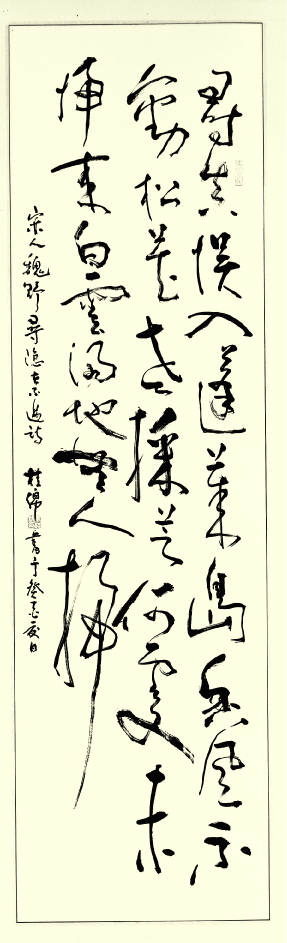 尋真誤入蓬萊島香風不
動松花老採芝何處未
歸來白雲滿地無人掃
宋人魏野尋隱者不遇詩 書于癸巳夏日